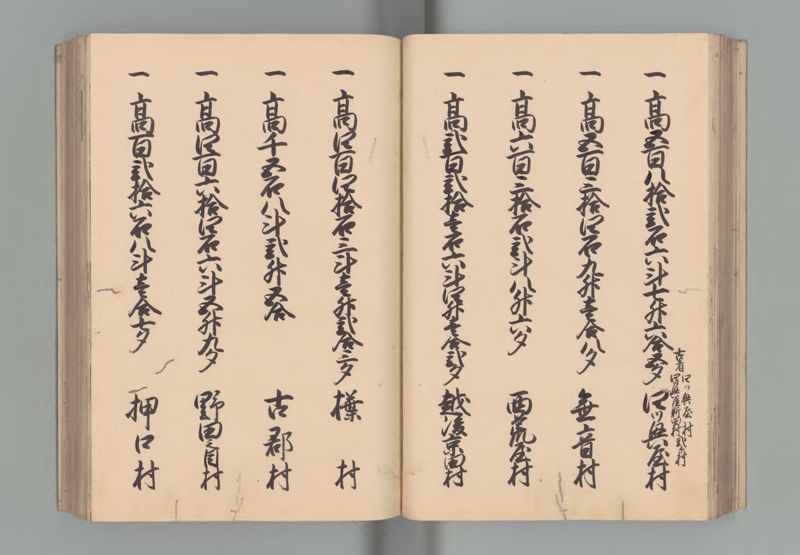 一 高五百八拾弐石六斗七升六合五夕 四ツ興屋村
古者 四ツ興屋村
四興屋新田村弐ヶ村
一 高五百三拾四石九升壱合八夕 無音村
一 高六百三拾石弐斗八升六夕 西荒屋村
一 高弐百弐拾壱石六斗四升壱合弐夕 越後京田村
一 高四百四拾石三斗壱升弐合三夕 村
一 高千五石八斗弐升五合 古郡村
一 高四百六拾四石六斗五升九夕 野田目村
一 高百弐拾六石八斗壱合七夕 押口村